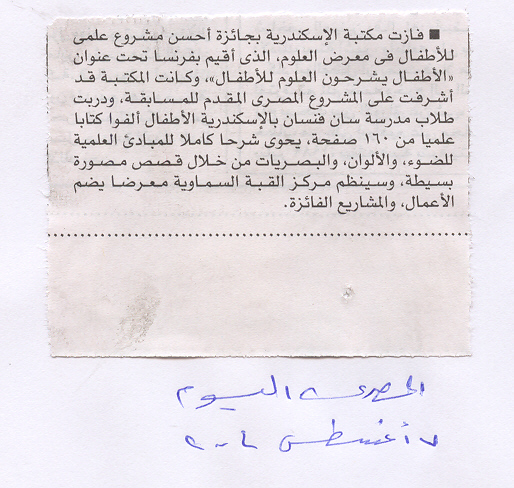 ■ فازت مكتبة الإسكندرية بجائزة أحسن مشروع علمى
للأطفال فى معرض العلوم، الذى أقيم بفرنسا تحت عنوان
«الأطفال يشرحون العلوم للأطفال»، وكانت المكتبة قد
أشرفت على المشروع المصرى المقدم للمسابقة، ودربت
طلاب مدرسة سان فنسان بالإسكندرية الأطفال ألفوا كتابا
علميا من ١٦٠ صفحة، يحوى شرحا كاملا للمبادئ العلمية
للضوء، والألوان، والبصريات من خلال قصص مصورة
بسيطة، وسينظم مركز القبة السماوية معرضا يضم
الأعمال، والمشاريع الفائزة.
المصرى اليوم
أغسطس